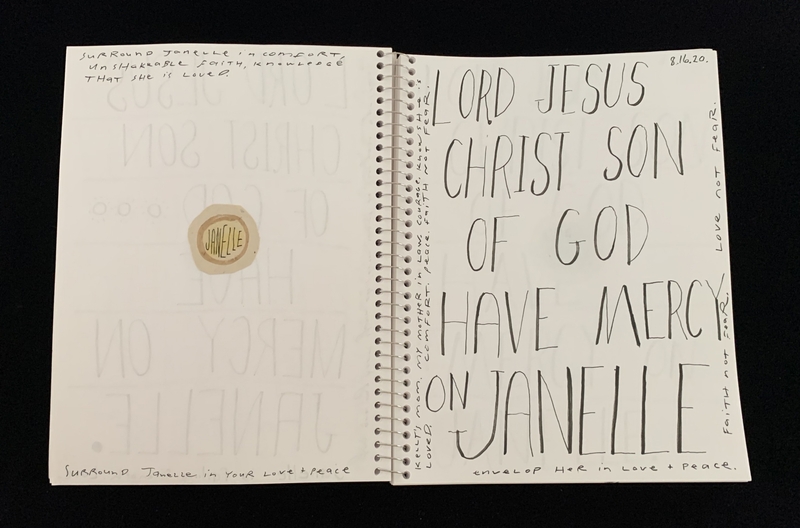 Surround Janelle in comfort,
unshakeable faith, knowledge
that she is loved.
JANELLE
Surround Janelle in your love + peace
8.16.20.
LORD JESUS
CHRIST SON
OF GOD
HAVE MERCY
ON JANELLE
Kelly's mom. My mother in law. courage. knows she is
loved. comfort. peace. faith not fear.
Faith not fear. Love not fear.
envelop her in love + peace.